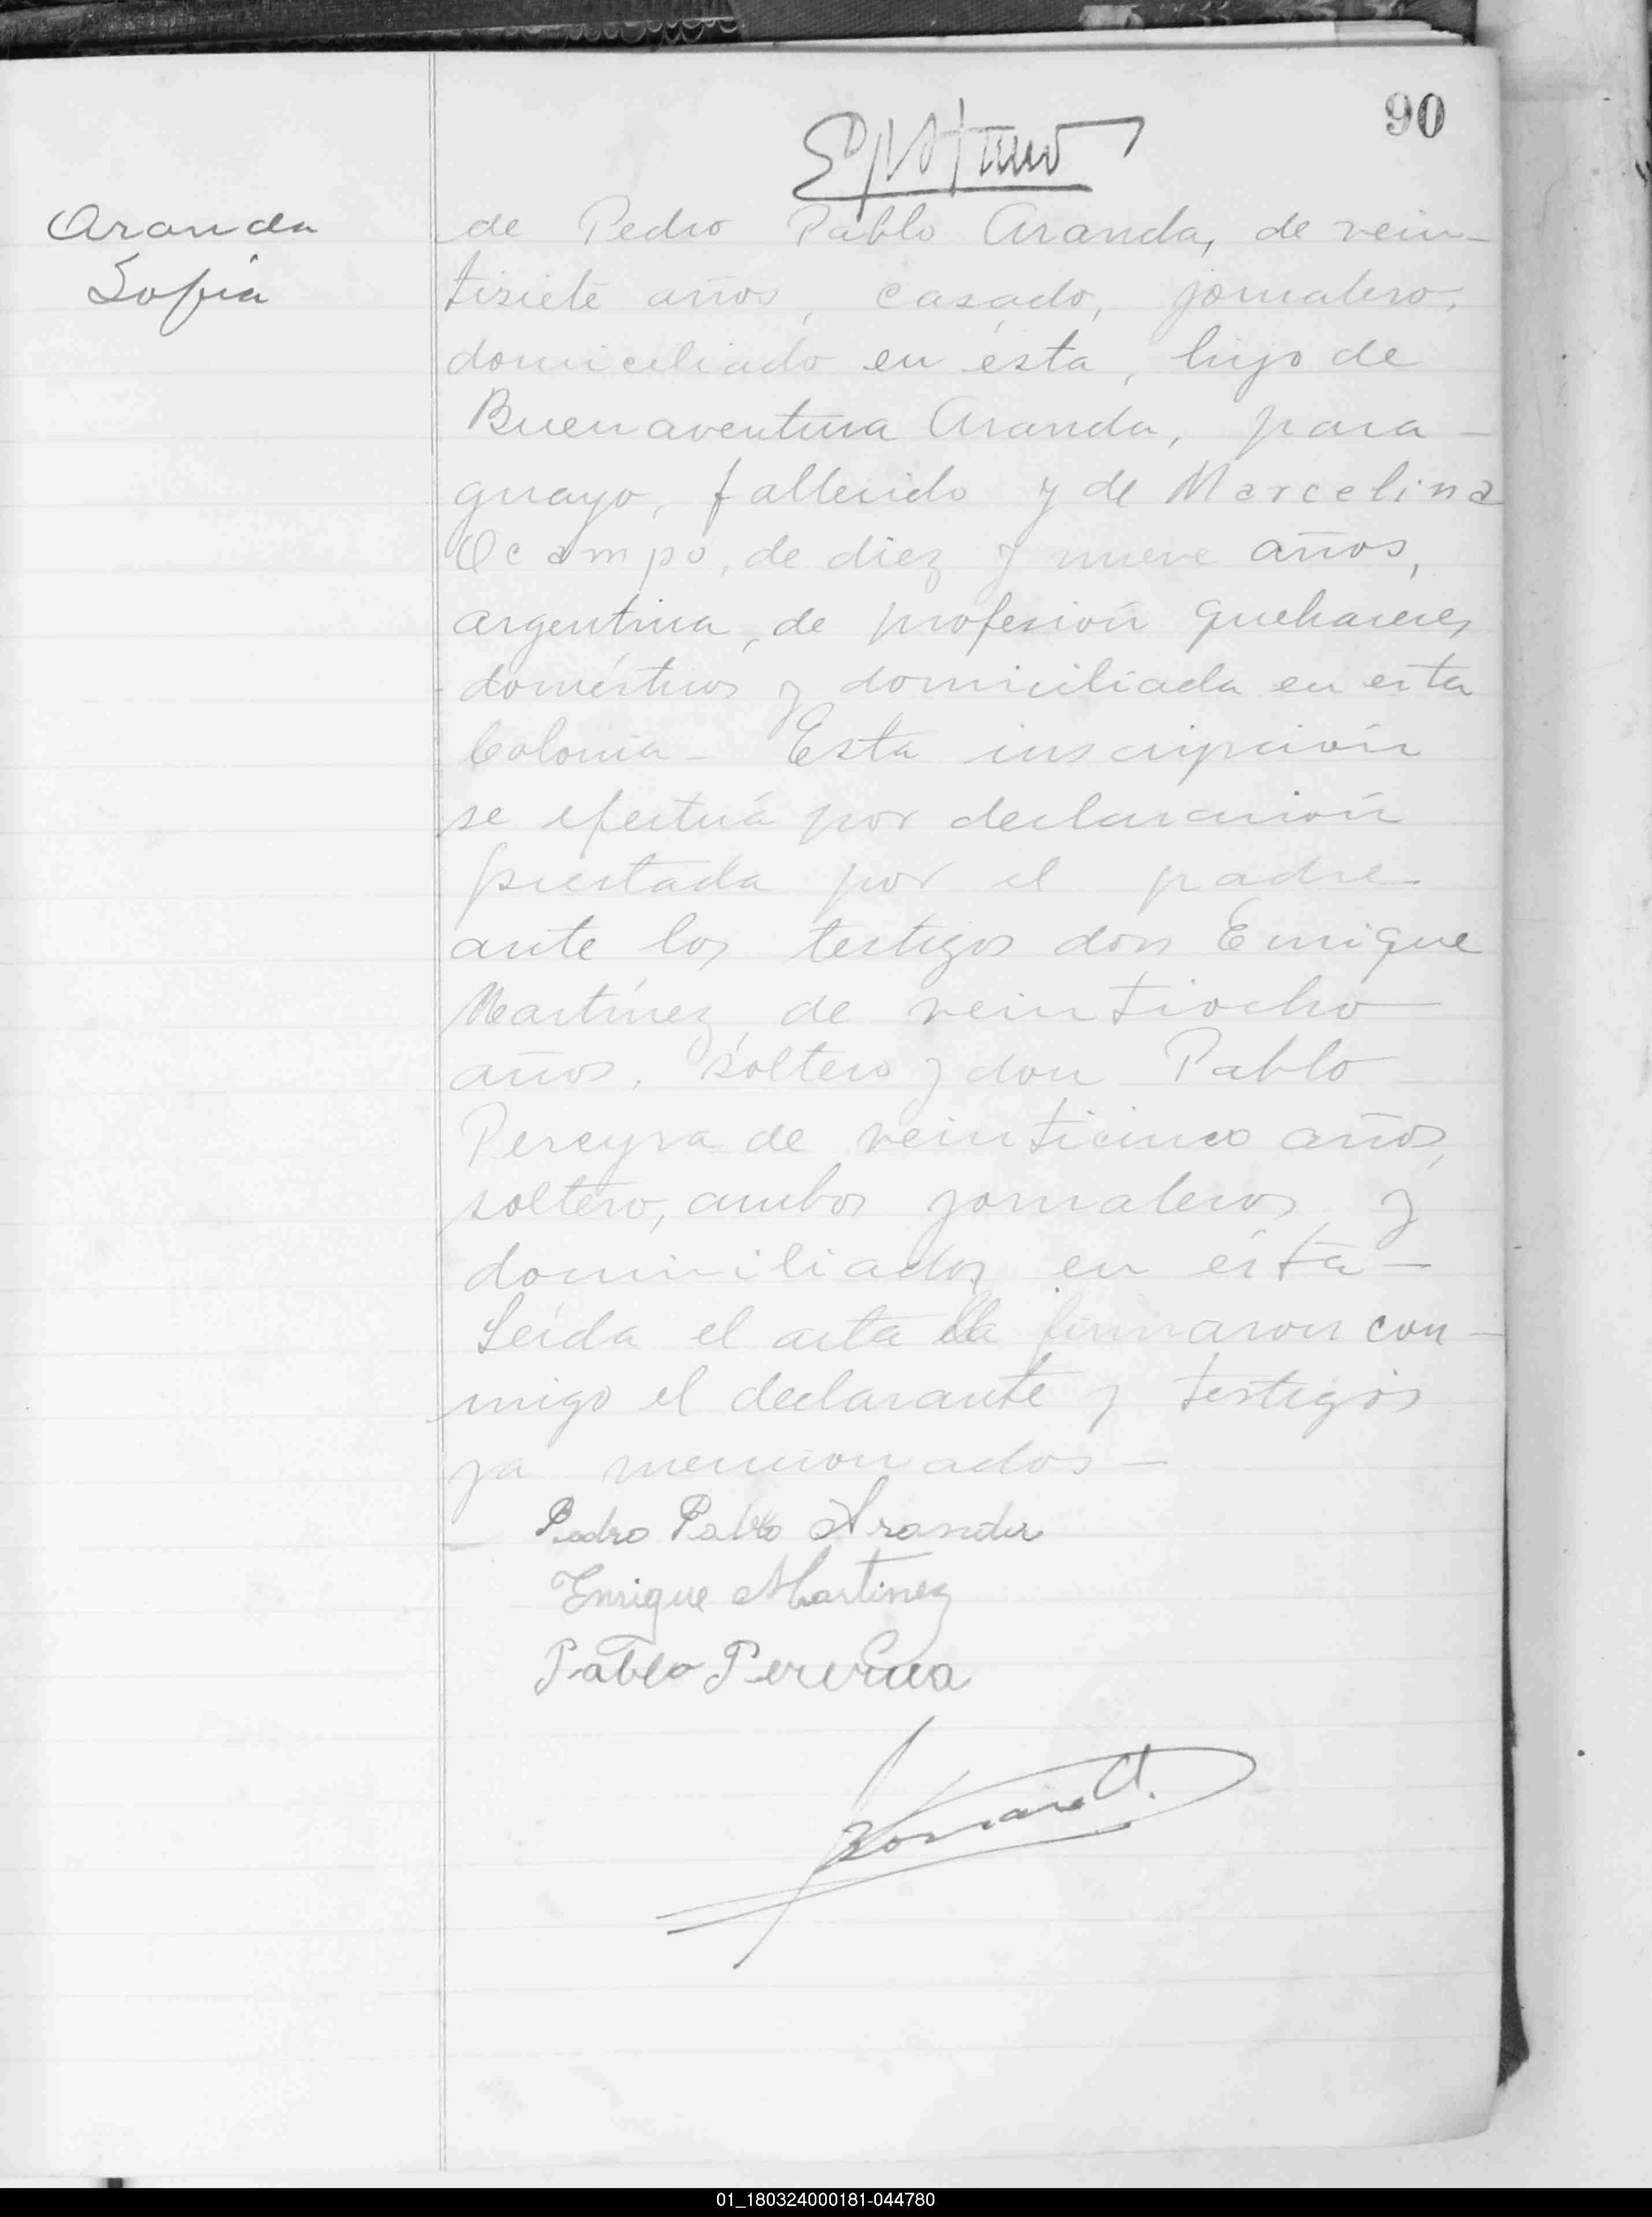 90
Aranda
Sofía
de Pedro Pablo Aranda, de vein-
tisiete años, casado, jornalero,
domiciliado en ésta, hijo de
Buenaventura Aranda, para-
guayo, fallecido y de Marcelina
Ocampo, de diez y nueve años,
argentina, de profesión quehaceres
domésticos y domiciliada en esta
Colonia - Esta inscripción
se efectuá por declaración
prestada por el padre
ante los testigos don Enrique
Martínez de veintiocho
años, soltero y don Pablo
Pereyra de veinticinco años,
soltero, ambos jornaleros y
domiciliados en ésta -
Leída el acta la firmaron con-
migo el declarante y testigos
ya mencionados -
Pedro Pablo Aranda
Enrique Martinez
Pablo Pereyra
01_180324000181-044780